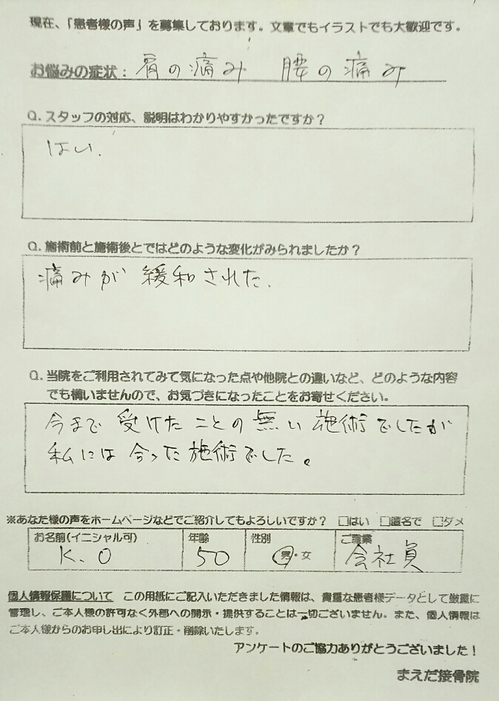 現在、「患者様の声」を募集しております。文章でもイラストでも大歓迎です。
お悩みの症状：肩の痛み 腰の痛み
Q.スタッフの対応、説明はわかりやすかったですか？
はい.
Q.施術前と施術後とではどのような変化がみられましたか？
痛みが緩和された.
Q.当院をご利用されてみて気になった点や他院との違いなど、どのような内容
でも構いませんので、お気づきになったことをお寄せください。
今まで受けたことの無い施術でしたが
私には合った施術でした。
※あなた様の声をホームページなどでご紹介してもよろしいですか？ □はい □匿名で □ダメ
お名前(イニシャル可) 年齢 性別 ご職業
K.O 50 男・女 会社員
個人情報保護について この用紙にご記入いただきました情報は、貴重な患者様データとして厳重に
管理し、ご本人様の許可なく外部への開示・提供することは一切ございません。また、個人情報は
ご本人様からのお申し出により訂正・削除いたします。
アンケートのご協力ありがとうございました！
まえだ接骨院